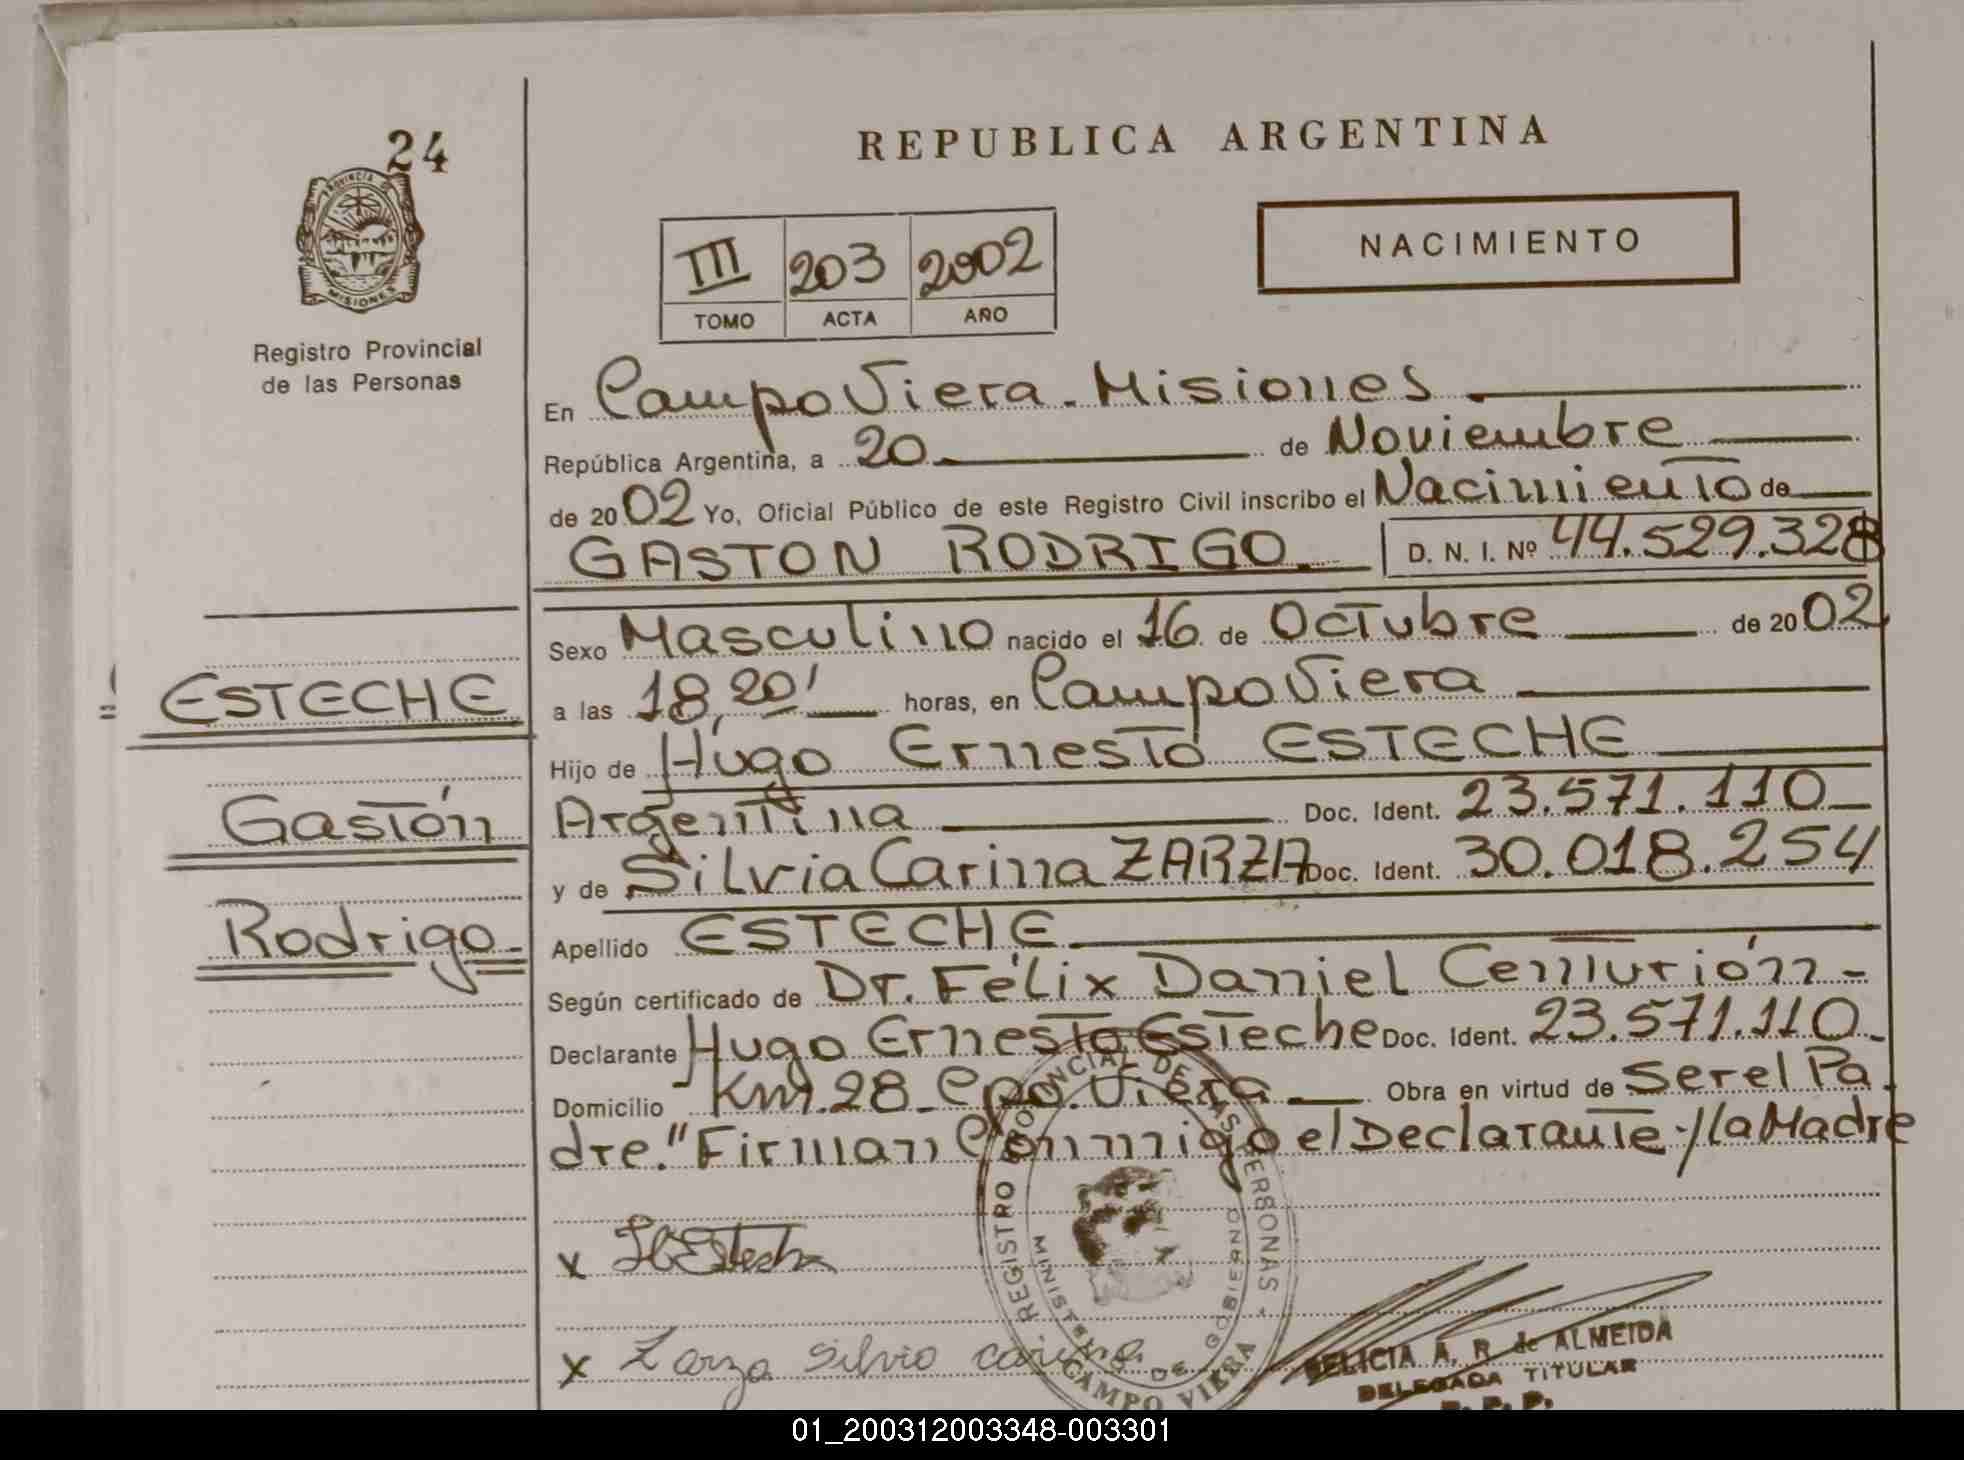 24
PROVINCIA DE
MISIONES
Registro Provincial
de las Personas
REPUBLICA ARGENTINA
NACIMIENTO
III 203 2002
TOMO ACTA AÑO
En Campo Viera - Misiones
República Argentina, a 20 de Noviembre
de 2002 Yo, Oficial Público de este Registro Civil inscribo el Nacimiento de
GASTON RODRIGO. D. N. I. Nº 44.529.328
Sexo Masculino nacido el 16 de Octubre de 2002
a las 18,20' horas, en Campo Viera
Hijo de Hugo Ernesto ESTECHE
Argentina Doc. Ident. 23.571.110
y de Silvia Carina ZARZA Doc. Ident. 30.018.254
Apellido ESTECHE
Según certificado de Dr. Félix Daniel Centurión -
Declarante Hugo Ernesto Esteche Doc. Ident. 23.571.110
Domicilio Km. 28 - Cpo. Viera Obra en virtud de Ser el Pa
dre." Firman Conmigo el Declarante y/ la Madre
ESTECHE
Gastón
Rodrigo
x H Esteche
x Zarza Silvia Carina
REGISTRO PROVINCIAL DE LAS PERSONAS
MINISTERIO DE GOBIERNO
CAMPO VIERA
FELICIA A. R. de ALMEIDA
DELEGADA TITULAR
R. P. P.
01_200312003348-003301